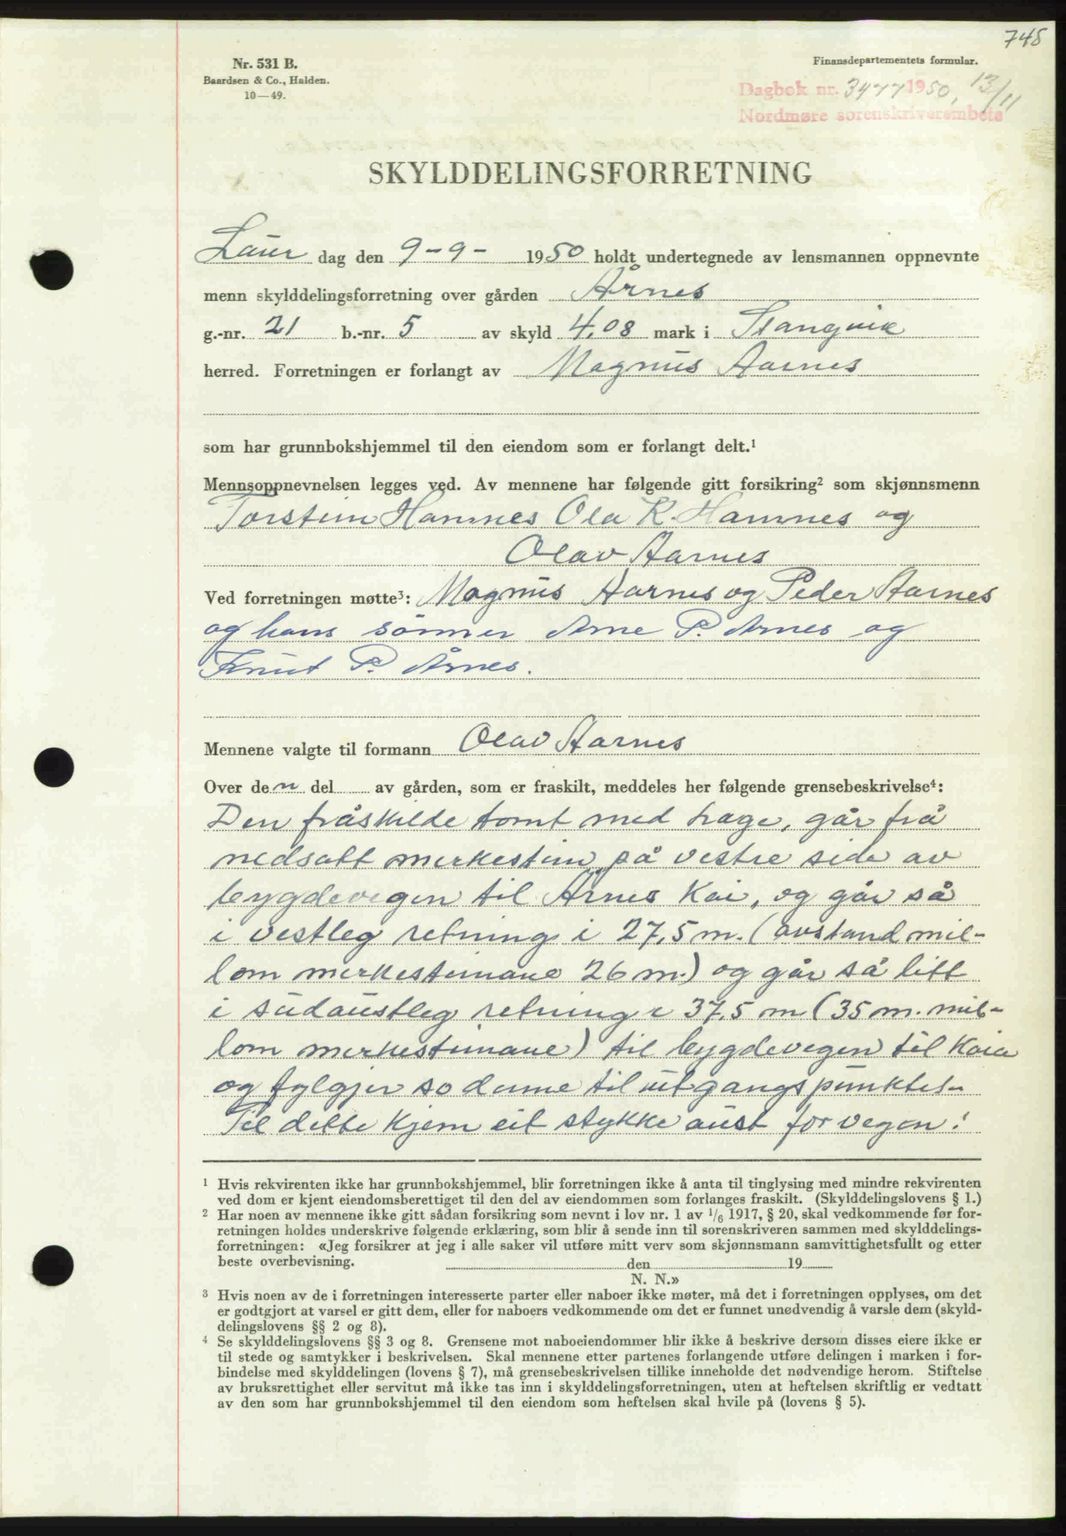 745
Nr. 531 B.
Baardsen & Co., Halden.
10—49.
Finansdepartementets formular.
Dagbok nr. 3477 1950, 13/11
Nordmøre sorenskriverembete
SKYLDDELINGSFORRETNING
Laur dag den 9-9- 1950 holdt undertegnede av lensmannen oppnevnte
menn skylddelingsforretning over gården Årnes
g.-nr. 21 b.-nr. 5 av skyld 4,08 mark i Stangvik
herred. Forretningen er forlangt av Magnus Aarnes
som har grunnbokshjemmel til den eiendom som er forlangt delt.¹
Mennsoppnevnelsen legges ved. Av mennene har følgende gitt forsikring² som skjønnsmenn
Torstein Hamnes Ola K. Hamnes og
Olav Aarnes
Ved forretningen møtte³: Magnus Aarnes og Peder Aarnes
og hans sönner Arne P. Årnes og
Knut P. Årnes.
Mennene valgte til formann Olav Aarnes
Over den del av gården, som er fraskilt, meddeles her følgende grensebeskrivelse⁴:
Den fråskilde tomt med hage, går frå
nedsatt merkestein på vestre side av
bygdevegen til Årnes Kai, og går så
i vestleg retning i 27,5 m. (avstand mil-
lom merkesteinane 26 m.) og går så litt
i südaustleg retning i 37,5 m (35 m. mil-
lom merkesteinane) til bygdevegen til Kaia
og fylgjer so denne til utgangspunktet.-
Til dette kjem eit stykke aust for vegen:
¹ Hvis rekvirenten ikke har grunnbokshjemmel, blir forretningen ikke å anta til tinglysing med mindre rekvirenten
ved dom er kjent eiendomsberettiget til den del av eiendommen som forlanges fraskilt. (Skylddelingslovens § 1.)
² Har noen av mennene ikke gitt sådan forsikring som nevnt i lov nr. 1 av ¹/₆ 1917, § 20, skal vedkommende før for-
retningen holdes underskrive følgende erklæring, som blir å sende inn til sorenskriveren sammen med skylddelings-
forretningen: «Jeg forsikrer at jeg i alle saker vil utføre mitt verv som skjønnsmann samvittighetsfullt og etter
beste overbevisning. den 19
N. N.»
³ Hvis noen av de i forretningen interesserte parter eller naboer ikke møter, må det i forretningen opplyses, om det
er godtgjort at varsel er gitt dem, eller for naboers vedkommende om det er funnet unødvendig å varsle dem (skyld-
delingslovens §§ 2 og 8).
⁴ Se skylddelingslovens §§ 3 og 8. Grensene mot naboeiendommer blir ikke å beskrive dersom disses eiere ikke er
til stede og samtykker i beskrivelsen. Skal mennene etter partenes forlangende utføre delingen i marken i for-
bindelse med skylddelingen (lovens § 7), må grensebeskrivelsen tillike inneholde det nødvendige herom. Stiftelse
av bruksrettighet eller servitut må ikke tas inn i skylddelingsforretningen, uten at heftelsen skriftlig er vedtatt
av den som har grunnbokshjemmel til den eiendom som heftelsen skal hvile på (lovens § 5).